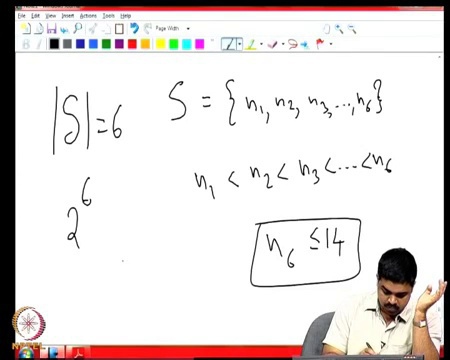 File Edit View Insert Actions Tools Help
Page Width
|S| = 6
S = { n₁, n₂, n₃, ..., n₆ }
n₁ < n₂ < n₃ < ... < n₆
2⁶
n₆ ≤ 14
NPTEL